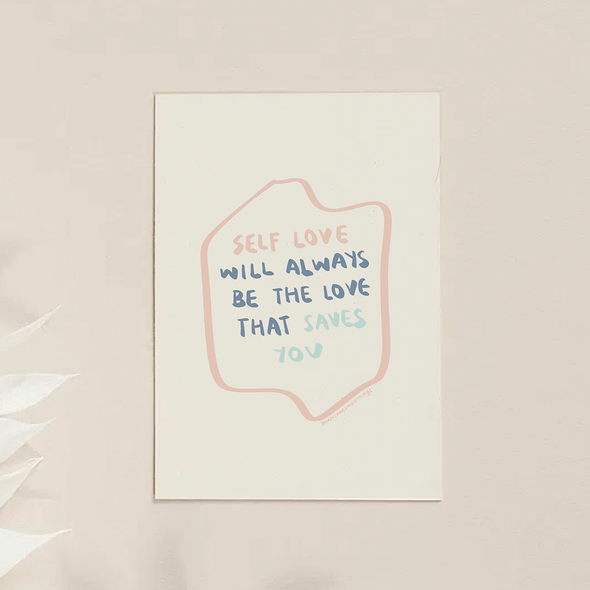 SELF LOVE
WILL ALWAYS
BE THE LOVE
THAT SAVES
YOU